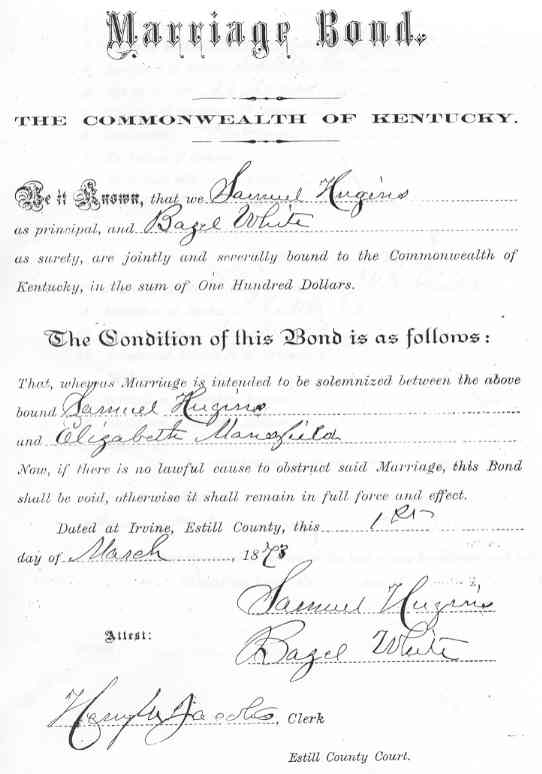 Marriage Bond.
THE COMMONWEALTH OF KENTUCKY.
Be it Known, that we Samuel Hugins
as principal, and Bazel White
as surety, are jointly and severally bound to the Commonwealth of
Kentucky, in the sum of One Hundred Dollars.
The Condition of this Bond is as follows:
That, whereas Marriage is intended to be solemnized between the above
bound Samuel Hugins
and Elizabeth Mansfield
Now, if there is no lawful cause to obstruct said Marriage, this Bond
shall be void, otherwise it shall remain in full force and effect.
Dated at Irvine, Estill County, this 1st
day of March, 1873
Samuel Hugins
Attest:
Bazel White
Jacobs, Clerk
Estill County Court.